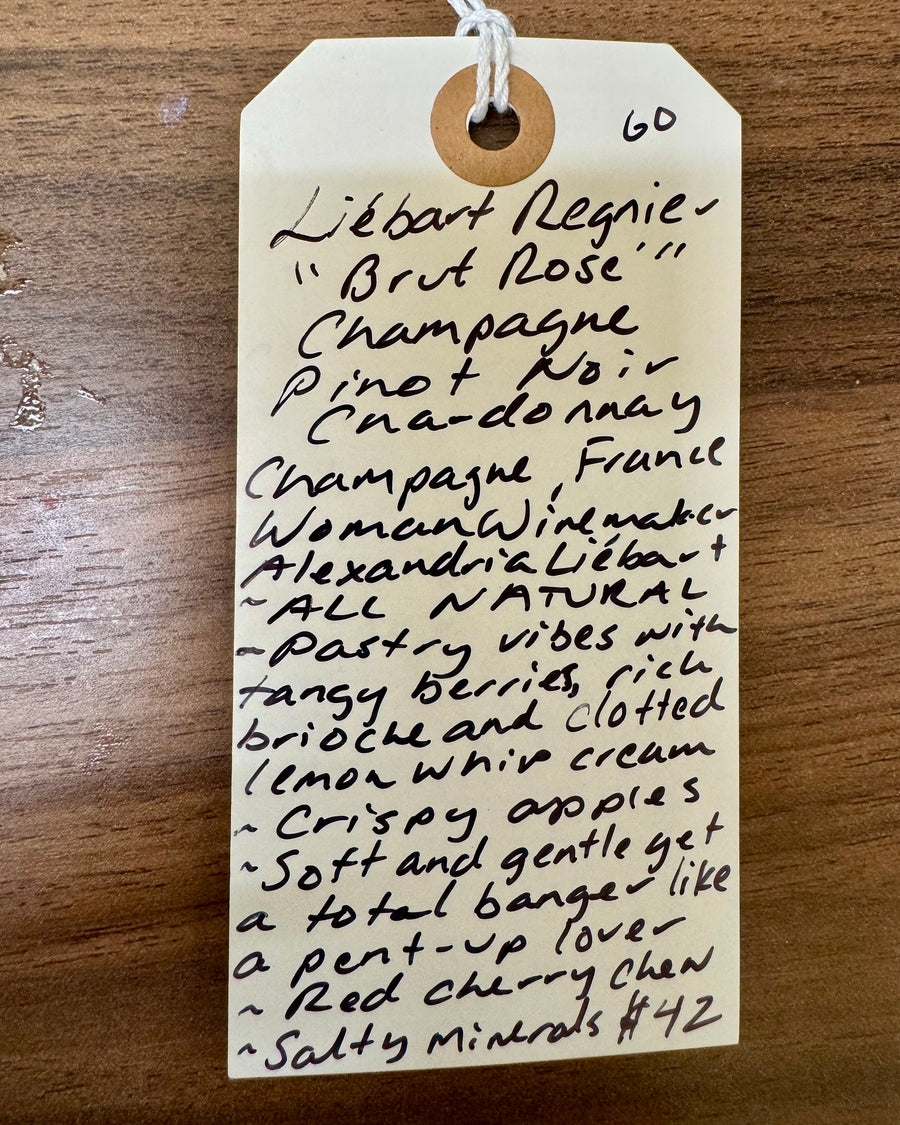 60
Liébart Regnier
"Brut Rosé"
Champagne
Pinot Noir
Chardonnay
Champagne, France
Woman Winemaker
Alexandria Liébart
~ ALL NATURAL
~ Pastry vibes with
tangy berries, rich
brioche and clotted
lemon whip cream
~ Crispy apples
~ Soft and gentle yet
a total banger like
a pent-up lover
~ Red cherry chew
~ Salty minerals $42